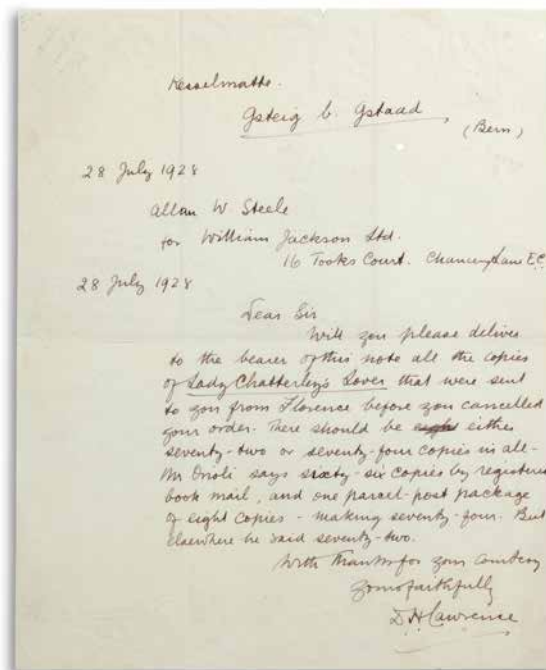 Kesselmatte.
Gsteig b. Gstaad
(Bern)
28 July 1928
Allan W. Steele
for William Jackson Ltd.
16 Tooks Court. Chancery Lane E.C.
28 July 1928
Dear Sir
Will you please deliver
to the bearer of this note all the copies
of Lady Chatterley's Lover that were sent
to you from Florence before you cancelled
your order. There should be either
seventy-two or seventy-four copies in all -
Mr Orioli says sixty-six copies by registered
book mail, and one parcel-post package
of eight copies - making seventy-four. But
elsewhere he said seventy-two.
With thanks for your courtesy
Yours faithfully
D. H. Lawrence